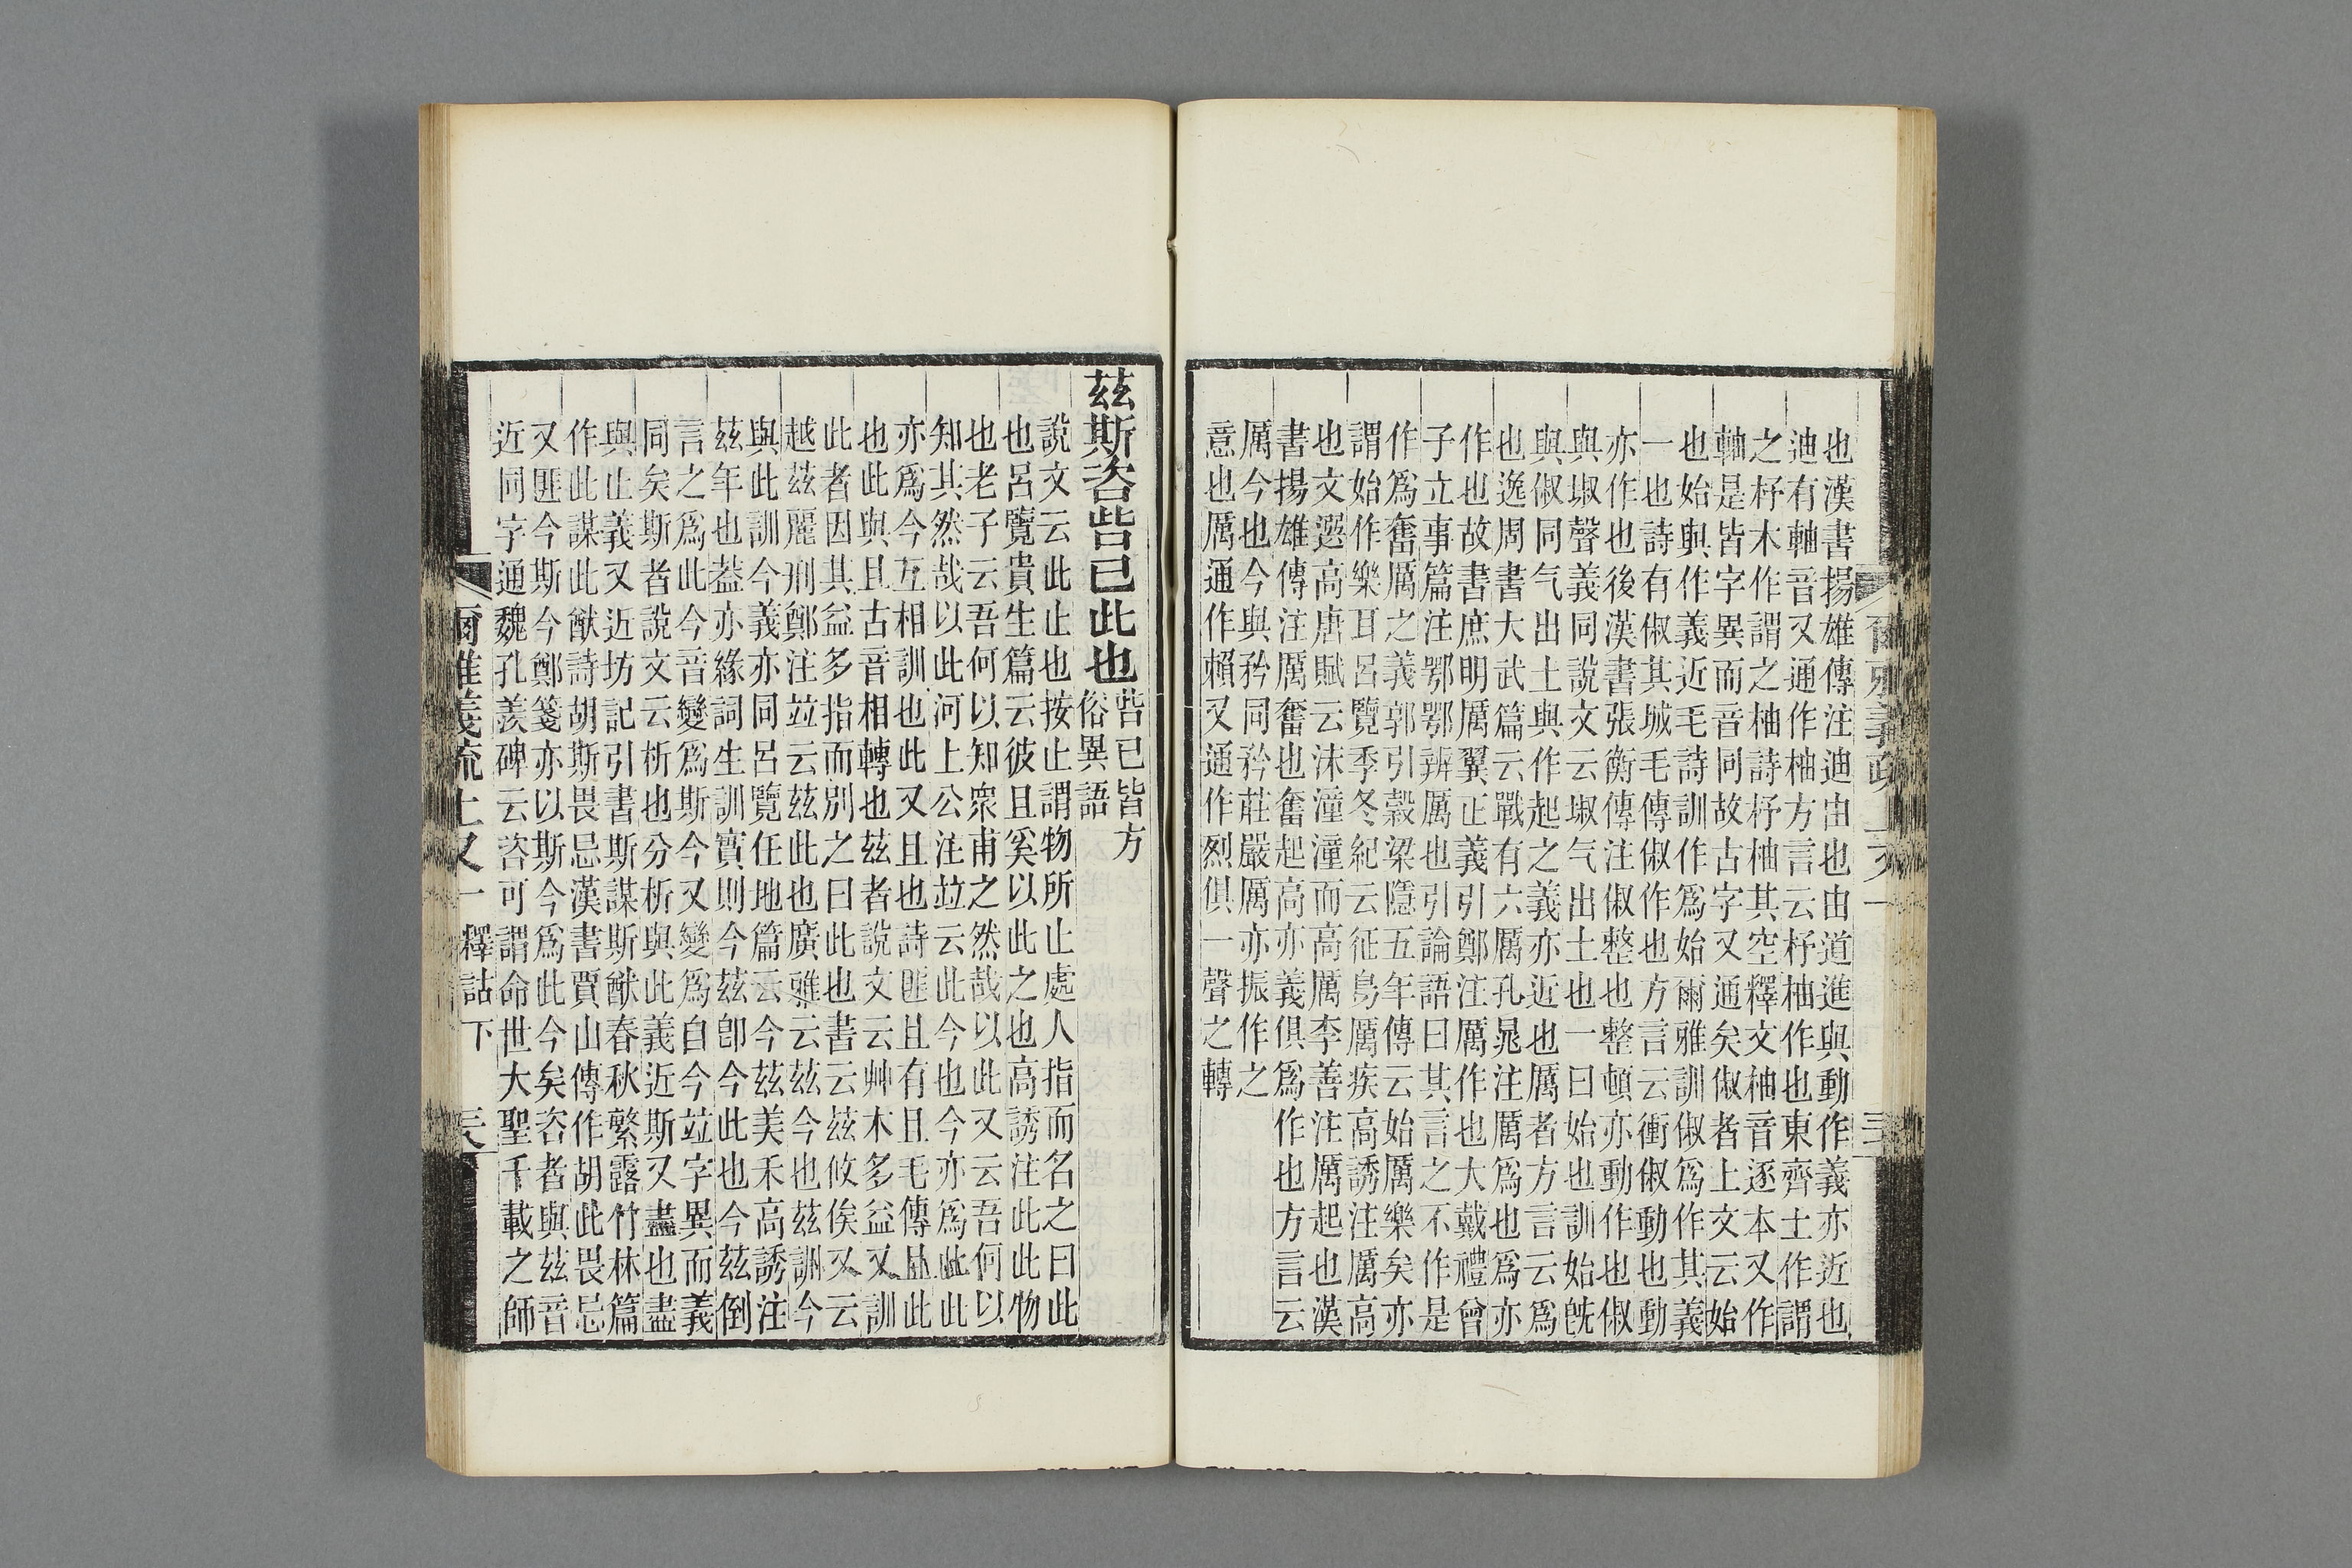 也漢書揚雄傳注迪由也由道進與動作義亦近也
迪有軸音又通作柚方言云杼柚作也東齊土作謂
之杼木作謂之柚詩杼柚其空釋文柚音逐本又作
軸是皆字異而音同故古字又通矣俶者上文云始
也始與作義近毛詩訓作爲始爾雅訓俶爲作其義
一也詩有俶其城毛傳俶作也方言云衝俶動也動
亦作也後漢書張衡傳注俶整也整頓亦動作也俶
與埱聲義同說文云埱气出土也一曰始也訓始旣
與俶同气出土與作起之義亦近也厲者方言云爲
也逸周書大武篇云戰有六厲孔晁注厲爲也爲亦
作也故書庶明厲翼正義引鄭注厲作也大戴禮曾
子立事篇注鄂鄂辨厲也引論語曰其言之不作是
作爲奮厲之義郭引穀梁隱五年傳云始厲樂矣亦
謂始作樂耳呂覽季冬紀云征鳥厲疾高誘注厲高
也文選高唐賦云沫潼潼而高厲李善注厲起也漢
書揚雄傳注厲奮也奮起高亦義俱爲作也方言云
厲今也今與矜同矜莊嚴厲亦振作之
意也厲通作賴又通作烈俱一聲之轉
爾雅義疏 上又一 三
茲斯咨呰已此也
呰已皆方
俗異語
說文云此止也按止謂物所止處人指而名之曰此
也呂覽貴生篇云彼且奚以此之也高誘注此此物
也老子云吾何以知衆甫之然哉以此又云吾何以
知其然哉以此河上公注竝云此今也今亦爲此此
亦爲今互相訓也此又且也詩匪且有且毛傳且此
也此與且古音相轉也茲者說文云艸木多益又訓
此者因其益多指而別之曰此也書云茲攸俟又云
越茲麗刑鄭注竝云茲此也廣雅云茲今也茲訓今
與此訓今義亦同呂覽任地篇云今茲美禾高誘注
茲年也葢亦緣詞生訓實則今茲卽今此也今茲倒
言之爲此今音變爲斯今又變爲自今竝字異而義
同矣斯者說文云析也分析與此義近斯又盡也盡
與止義又近坊記引書斯謀斯猷春秋繁露竹林篇
作此謀此猷詩胡斯畏忌漢書賈山傳作胡此畏忌
又匪今斯今鄭箋亦以斯今爲此今矣咨者與茲音
近同字通魏孔羨碑云咨可謂命世大聖千載之師
爾雅義疏 上又一 釋詁下